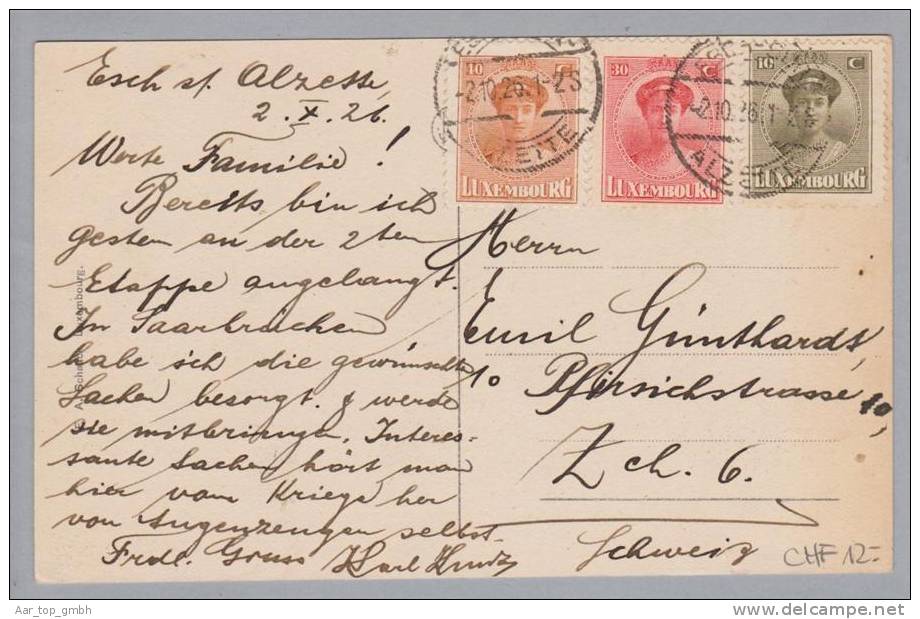 Esch s/. Alzette
2. X. 26.
Werte Familie!
Bereits bin ich
gestern an der 2ten
Etappe angelangt.
In Saarbrücken
habe ich die gewünschten
Sachen besorgt. & werde
sie mitbringen. Interes-
sante Sachen hört man
hier vom Kriege her
von Augenzeugen selbst.
Frdl. Gruss Karl
A. Schaa Luxembourg.
10 C
LUXEMBOURG
30 C
LUXEMBOURG
10 C
LUXEMBOURG
-2.10.26.1-2S
ALZETTE
-2.10.26.1-2S
ALZE
Herrn
Emil Günthardt,
10 Pfirsichstrasse 10,
Zch. 6.
Schweiz
CHF 12.-
Aar_top_gmbh
www.delcampe.net